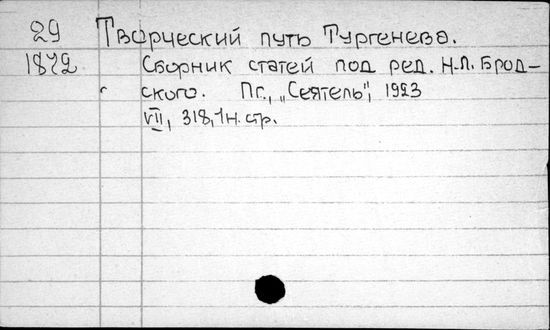 29 Творческий путь Тургенева.
1872 Сборник статей под ред. Н.Л. Брод-
ского. Пг., „Сеятель", 1923
VII, 318, 1 н. стр.